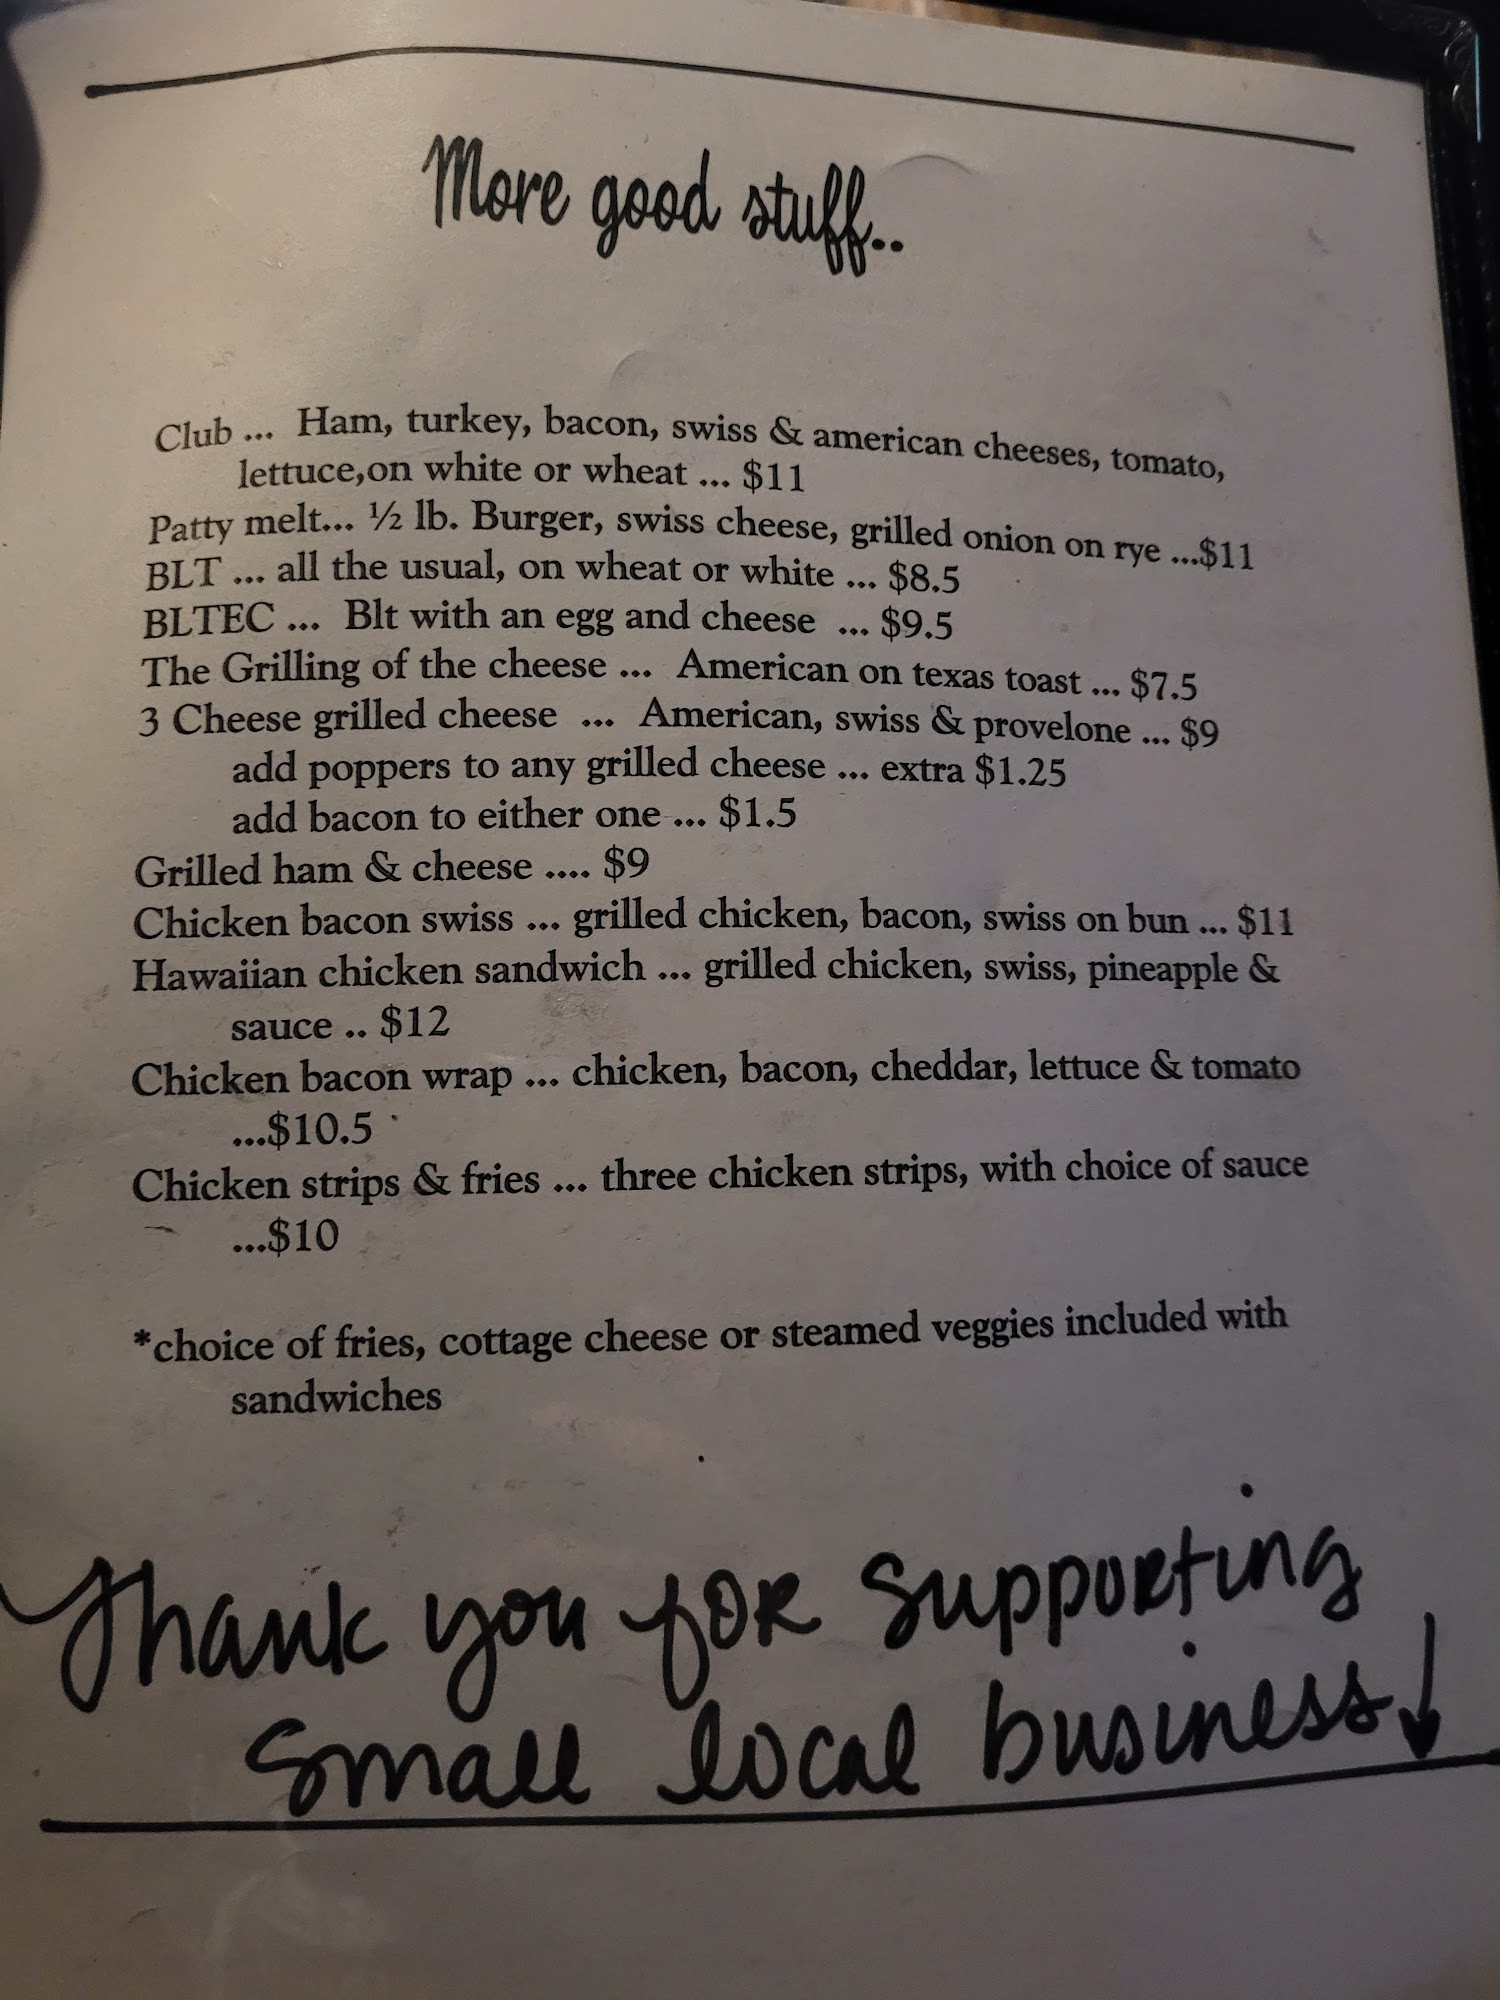 More good stuff..
Club ... Ham, turkey, bacon, swiss & american cheeses, tomato,
lettuce,on white or wheat ... $11
Patty melt... ½ lb. Burger, swiss cheese, grilled onion on rye ...$11
BLT ... all the usual, on wheat or white ... $8.5
BLTEC ... Blt with an egg and cheese ... $9.5
The Grilling of the cheese ... American on texas toast ... $7.5
3 Cheese grilled cheese ... American, swiss & provelone ... $9
add poppers to any grilled cheese ... extra $1.25
add bacon to either one ... $1.5
Grilled ham & cheese .... $9
Chicken bacon swiss ... grilled chicken, bacon, swiss on bun ... $11
Hawaiian chicken sandwich ... grilled chicken, swiss, pineapple &
sauce .. $12
Chicken bacon wrap ... chicken, bacon, cheddar, lettuce & tomato
...$10.5
Chicken strips & fries ... three chicken strips, with choice of sauce
...$10
*choice of fries, cottage cheese or steamed veggies included with
sandwiches
Thank you for supporting
small local business